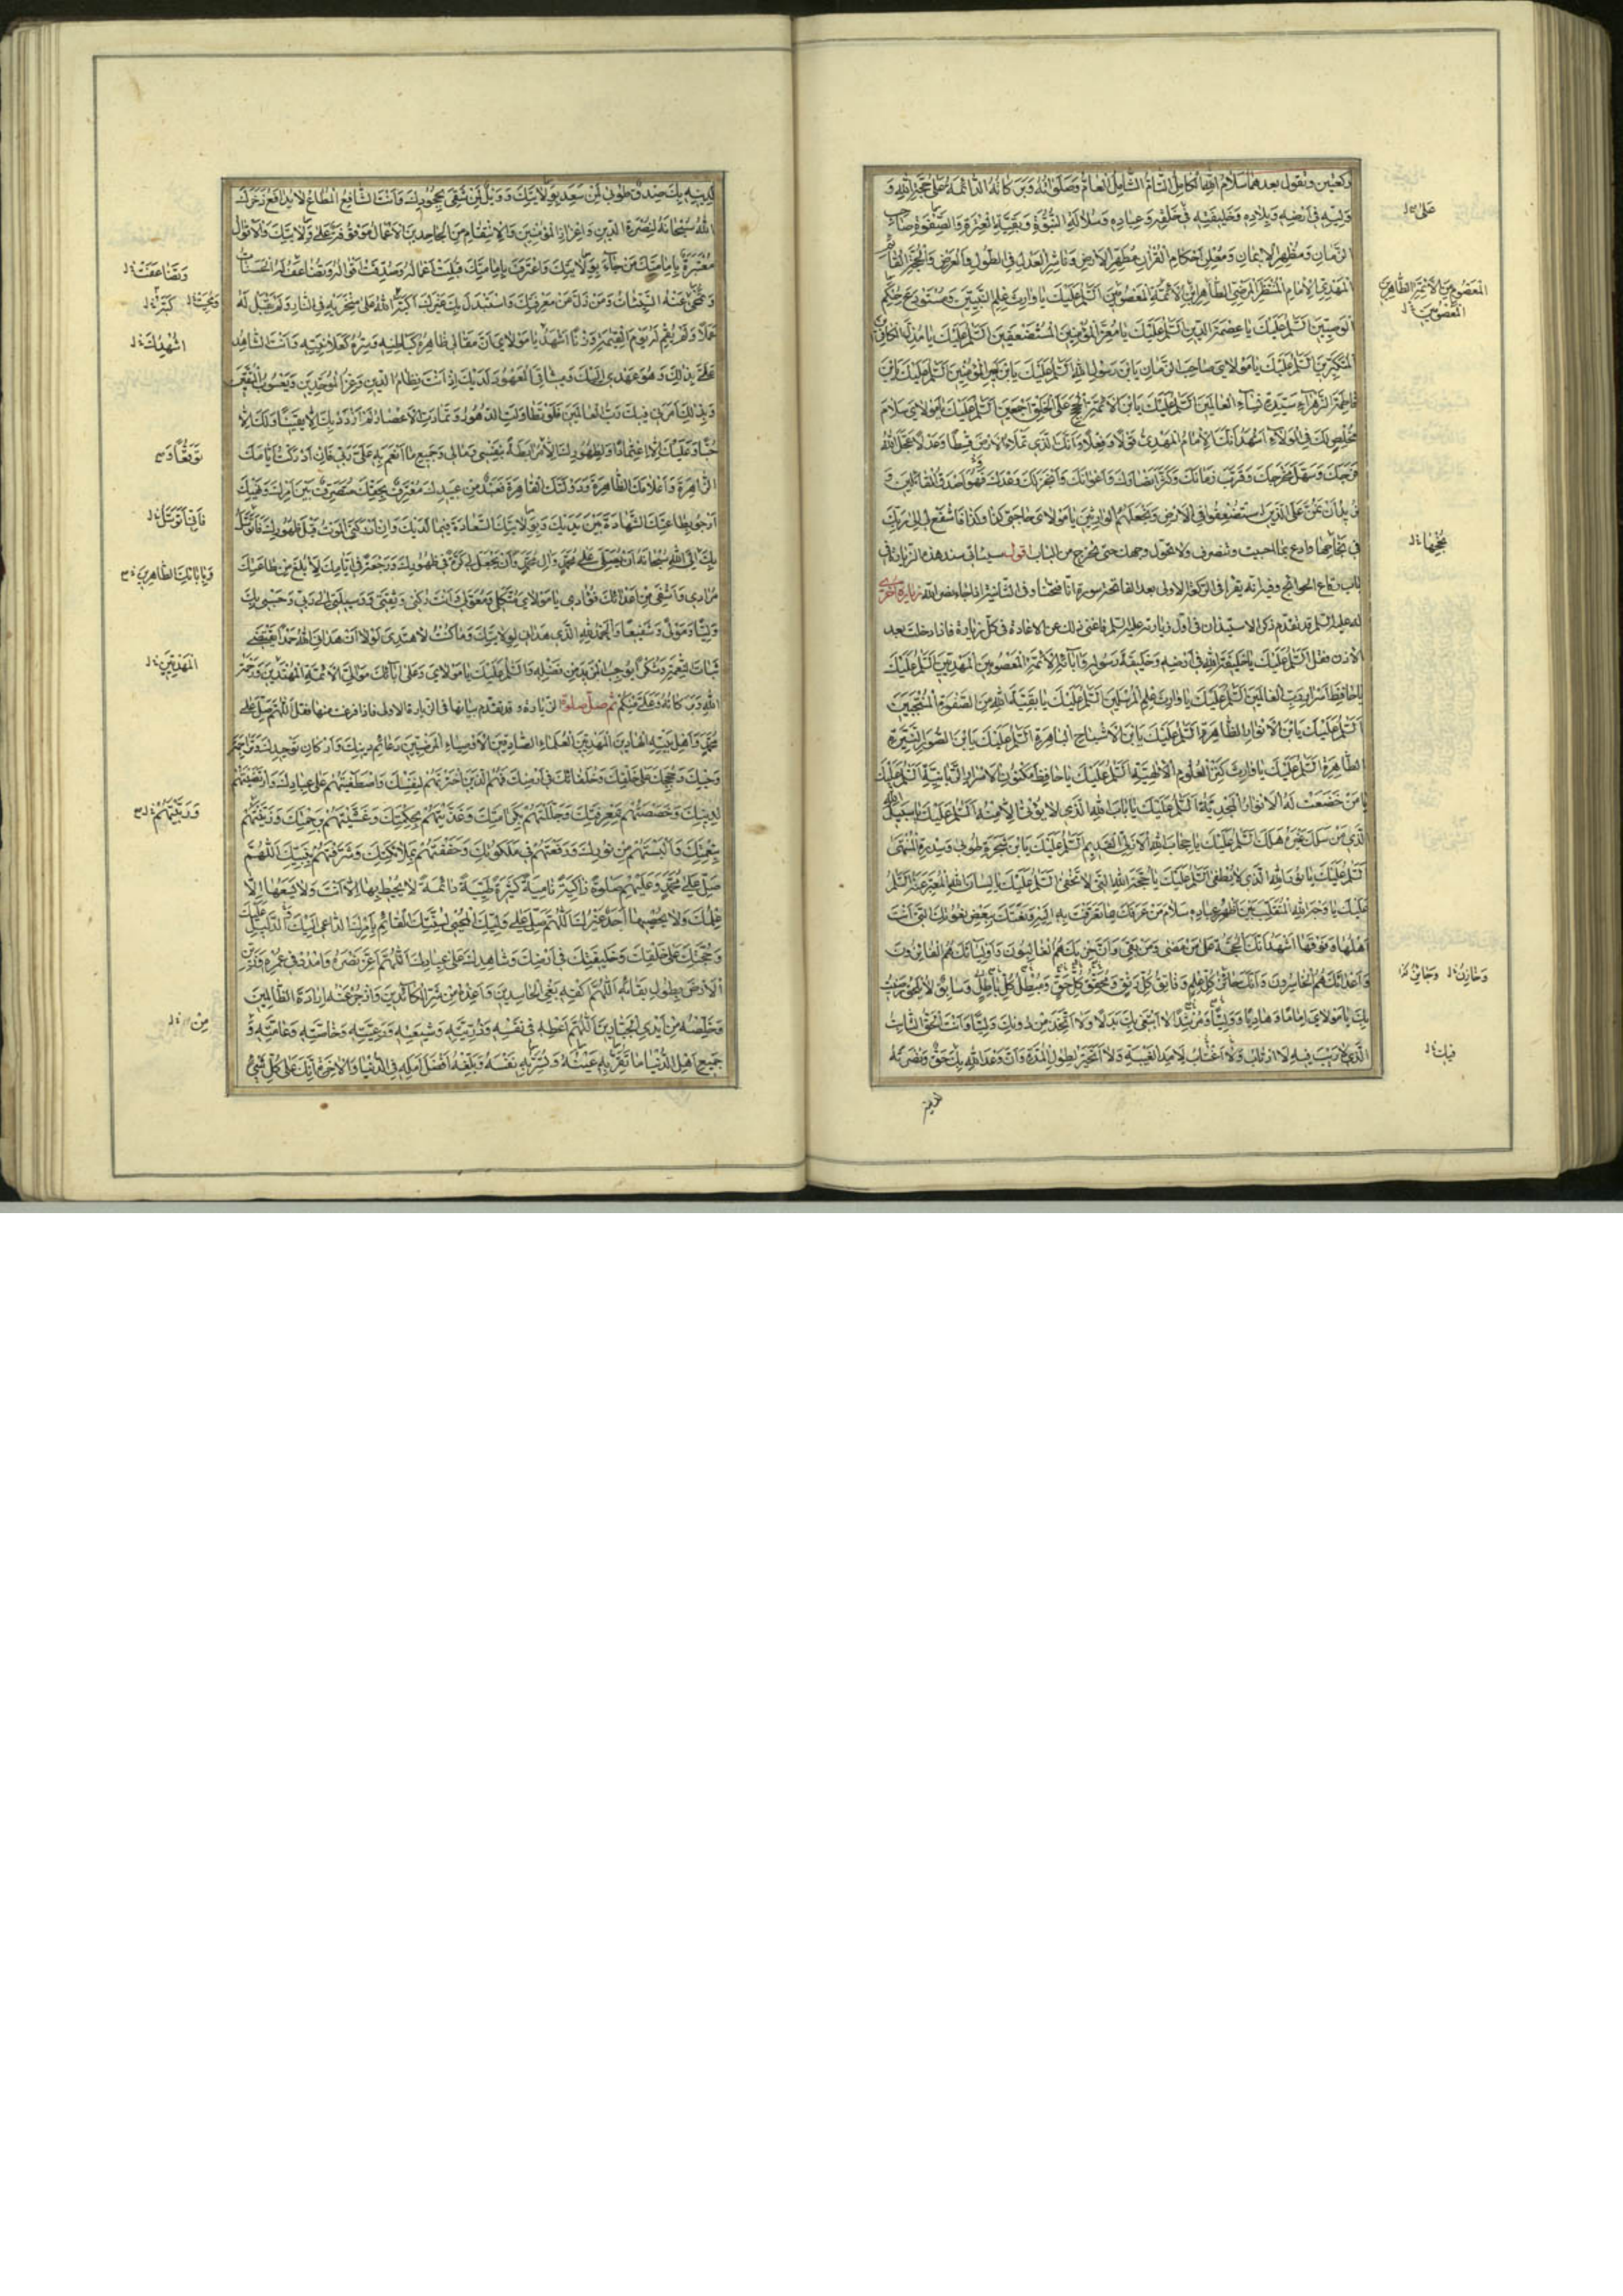 ركعتين وتقول بعدهما سلام الله الكامل التام الشامل العام وصلواته وبركاته الدائمة على حجة الله و
وليه في أرضه وبلاده وخليفته في خلقه وعباده وسلالة النبوة وبقية العترة والصفوة صاحب
الزمان ومظهر الايمان ومعلن احكام القرآن مطهر الارض وناشر العدل في الطول والعرض والحجة القائم
المهدي الامام المنتظر المرضي الطاهر ابن الائمة المعصومين السلم عليك يا وارث علم النبيين ومستودع حكم
الوصيين السلم عليك يا عصمة الدين السلم عليك يا معز المؤمنين المستضعفين السلم عليك يا مذل الكافرين
المتكبرين السلم عليك يا مولاي صاحب الزمان يا بن رسول الله السلم عليك يا بن امير المؤمنين السلم عليك يا بن
فاطمة الزهراء سيدة نساء العالمين السلم عليك يا بن الائمة الحجج على الخلق اجمعين السلم عليك يا مولاي سلام
مخلص لك في الولاء اشهد انك الامام المهدي قولا وفعلا وانك الذي تملأ الارض قسطا وعدلا عجل الله
فرجك وسهل مخرجك وقرب زمانك وكثر انصارك واعوانك وانجز لك وعدك فهو اصدق القائلين و
نريد أن نمن على الذين استضعفوا في الارض ونجعلهم الوارثين يا مولاي حاجتي كذا وكذا فاشفع لي الى ربك
في نجاحها وادع بما احببت وتنصرف ولا تحول وجهك حتى تخرج من الباب اقول سيأتي سند هذه الزيارة في
باب رقاع الحوائج وفيه انه يقرأ في الركعة الاولى بعد الفاتحة سورة انا فتحنا وفي الثانية اذا جاء نصر الله زيارة اخرى
له عليه السلم قد تقدم ذكر الاستيذان في اول زيارته عليه السلم فاغنى ذلك عن الاعادة في كل زيارة فاذا دخلت بعد
الاذن فقل السلم عليك يا خليفة الله في أرضه وخليفة رسوله وآبائه الائمة المعصومين المهديين السلم عليك
يا حافظ اسرار رب العالمين السلم عليك يا وارث علم المرسلين السلم عليك يا بقية الله من الصفوة المنتجبين
السلم عليك يا بن الانوار الظاهرة السلم عليك يا بن الاشباح الباهرة السلم عليك يا بن الصور النيرة
الطاهرة السلم عليك يا وارث كنز العلوم الالهية السلم عليك يا حافظ مكنون الاسرار الربانية السلم عليك
يا من خضعت له الانوار المجدية السلم عليك يا باب الله الذي لا يؤتى الا منه السلم عليك يا سبيل الله
الذي من سلك غيره هلك السلم عليك يا حجاب الله الازلي القديم السلم عليك يا بن شجرة طوبى وسدرة المنتهى
السلم عليك يا نور الله الذي لا يطفى السلم عليك يا حجة الله التي لا تخفى السلم عليك يا لسان الله المعبر عنه السلم
عليك يا وجه الله المتقلب بين اظهر عباده سلام من عرفك بما تعرفت به اليه ونعتك ببعض نعوتك التي انت
اهلها وفوقها اشهد انك الحجة على من مضى ومن بقي وأن حزبك هم الغالبون واوليائك هم الفائزون
واعدائك هم الخاسرون وانك حائز كل علم وفاتق كل رتق ومحقق كل حق ومبطل كل باطل وسابق لا يلحق رضيت
بك يا مولاي اماما وهاديا ووليا ومرشدا لا ابتغي بك بدلا ولا اتخذ من دونك وليا وانك الحق الثابت
الذي لا ريب فيه لا ارتاب ولا اغتاب لامد الغيبة ولا اتحير لطول المدة وأن وعد الله بك حق ونصرته
على س ل
المعصوم بن الائمة الطاهرين
المعصومين ل
نجحها ل
وحازن ل وخابن
فيك ل
لدينه بك صدق طوبى لمن سعد بولايتك وويل لمن شقي بجحودك وانت الشافع المطاع لا يدافع ذخرك
الله سبحانه لنصرة الدين واعزاز المؤمنين والانتقام من الجاحدين الاعمال موقوفة على ولايتك والاقوال
معتبرة بامامتك من جاء بولايتك واعترف بامامتك قبلت اعماله وصدقت اقواله وتضاعف له الحسنات
وتمحى عنه السيئات ومن زل عن معرفتك واستبدل بك غيرك اكبه الله على منخريه في النار ولم يقبل له
عملا ولم يقم له يوم القيمة وزنا اشهد يا مولاي ان مقالي ظاهره كباطنه وسره كعلانيته وانت الشاهد
على بذلك وهو عهدي اليك وميثاقي المعهود لديك اذ انت نظام الدين وعز الموحدين ويعسوب المتقين
وبذلك امرني فيك رب العالمين فلو تطاولت الدهور وتمادت الاعصار لم ازدد بك الا يقينا ولك الا
حبا وعليك الا اعتمادا ولظهورك الا مرابطة بنفسي ومالي وجميع ما انعم به علي ربي فان ادركت ايامك
الزاهرة واعلامك الظاهرة ودولتك القاهرة فعبد من عبيدك معترف بحقك متصرف بين امرك ونهيك
ارجو بطاعتك الشهادة بين يديك وبولايتك السعادة فيما لديك وان ادركني الموت قبل ظهورك فاتوسل
بك الى الله سبحانه أن يصلي على محمد وآل محمد وأن يجعل لي كرة في ظهورك ورجعة في ايامك لابلغ من طاعتك
مرادي واشفي من اعدائك فؤادي يا مولاي
وليا ومولى وشفيعا والحمد لله الذي هداني لولايتك وما كنت لاهتدي لولا أن هداني الله حمدا يقتضي
ثبات النعمة وشكرا يوجب المزيد من فضله والسلم عليك يا مولاي وعلى آبائك موالي الائمة المهتدين ورحمة
الله وبركاته وعلي منكم ثم صل صلوة الزيارة وقد تقدم بيانها في الزيارة الاولى فاذا فرغت منها فقل اللهم صل على
محمد وأهل بيته الهادين المهديين العلماء الصادقين الاوصياء المرضيين دعائم دينك واركان توحيدك وتراجمة
وحيك وحججك على خلقك وخلفائك في ارضك فهم الذين اخترتهم لنفسك واصطفيتهم على عبادك وارتضيتهم
لدينك وخصصتهم بمعرفتك وجللتهم بكرامتك وغذيتهم بحكمتك وغشيتهم برحمتك وزينتهم
بنعمتك والبستهم من نورك ورفعتهم في ملكوتك وحففتهم بملائكتك وشرفتهم بنبيك اللهم
صل على محمد وعليهم صلوة زاكية نامية كثيرة طيبة دائمة لا يحيط بها الا انت ولا يسعها الا
علمك ولا يحصيها احد غيرك اللهم صل على وليك المحيي لسنتك القائم بامرك الداعي اليك الدليل عليك
وحجتك على خلقك وخليفتك في ارضك وشاهدك على عبادك اللهم اعز نصره وامدد في عمره وزين
الارض بطول بقائه اللهم اكفه بغي الحاسدين واعذه من شر الكائدين وازجر عنه ارادة الظالمين
وخلصه من ايدي الجبارين اللهم اعطه في نفسه وذريته وشيعته ورعيته وخاصته وعامته و
جميع اهل الدنيا ما تقر به عينه وتسر به نفسه وبلغه افضل امله في الدنيا والاخرة انك على كل شئ
وتضاعفت ل
كبه ل
اشهدك ل
توقعا وس
فاني اتوسل ل
وبابائك الطاهرين س
المهديين ل
وربيتهم ل س
من ل